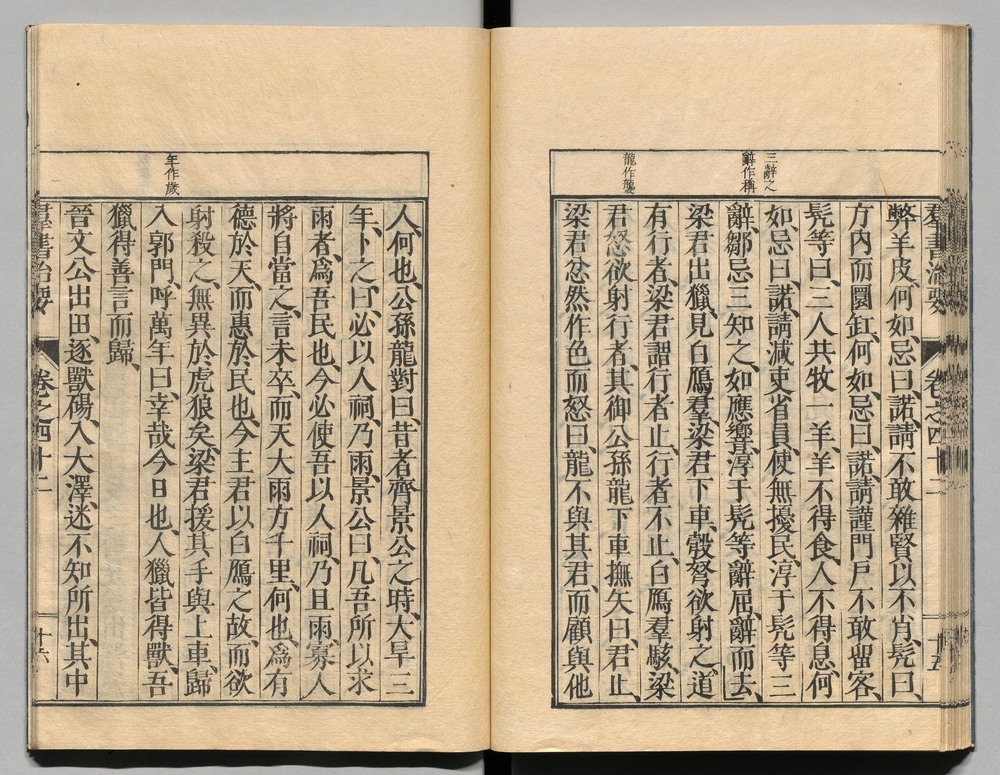 群書治要 卷之四十二 十五
三辭之
辭作稱
龍作襲
弊羊皮、何如、忌曰、諾、請不敢雜賢以不肖、髡曰、
方內而圜釭、何如、忌曰、諾、請謹門戶、不敢留客、
髡等曰、三人共牧一羊、羊不得食、人不得息、何
如、忌曰、諾、請減吏省員、使無擾民、淳于髡等三
辭、鄒忌三知之、如應響、淳于髡等辭屈、辭而去、
梁君出獵、見白鴈羣、梁君下車、彀弩欲射之、道
有行者、梁君謂行者止、行者不止、白鴈羣駭、梁
君怒、欲射行者、其御公孫龍下車撫矢曰、君止、
梁君忿然作色而怒曰、龍不與其君、而顧與他
年作歲
人、何也、公孫龍對曰、昔者齊景公之時、大旱三
年、卜之曰、必以人祠、乃雨、景公曰、凡吾所以求
雨者、爲吾民也、今必使吾以人祠、乃且雨、寡人
將自當之、言未卒、而天大雨方千里、何也、爲有
德於天、而惠於民也、今主君以白鴈之故、而欲
射殺之、無異於虎狼矣、梁君援其手與上車、歸
入郭門、呼萬年曰、幸哉、今日也、人獵皆得獸、吾
獵得善言而歸、
晉文公出田、逐獸碭、入大澤、迷不知所出、其中
群書治要 卷之四十二 十六